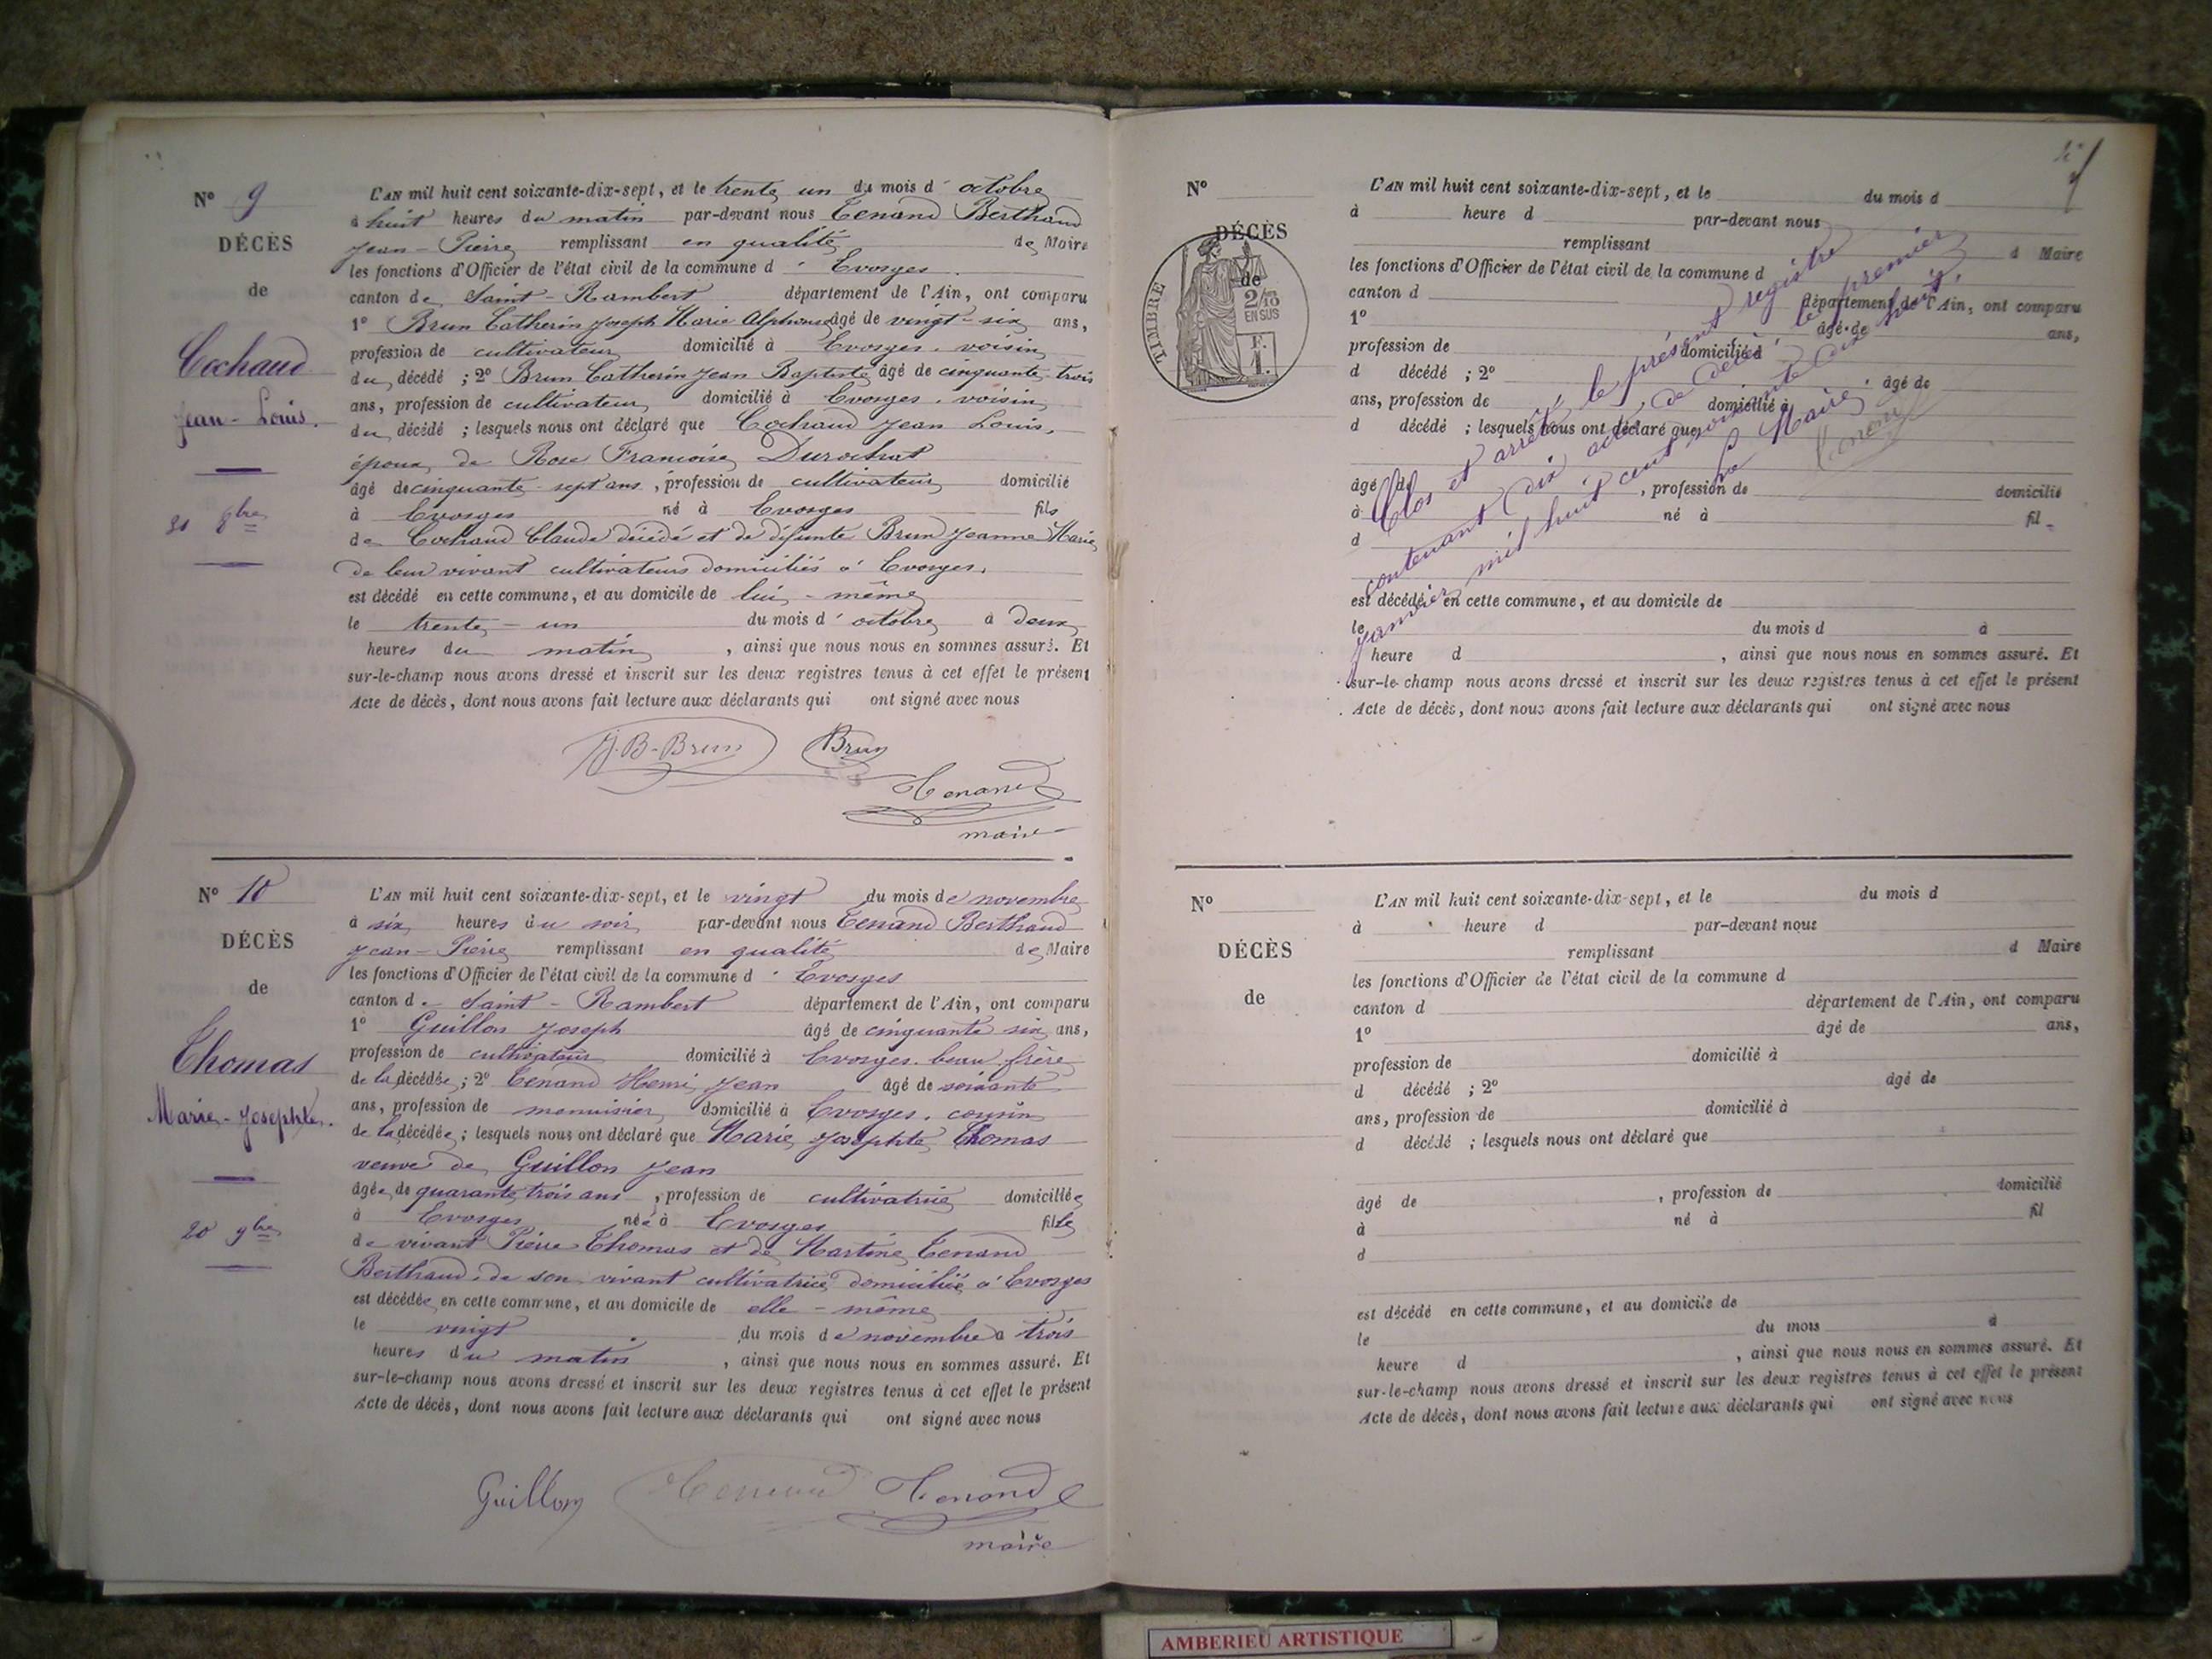 Nº 9
DÉCÈS
de
Cochaud
Jean-Louis.
31 8bre
L'AN mil huit cent soixante-dix-sept, et le trente un du mois d'octobre
à huit heures du matin par-devant nous Tenand Berthaud
Jean-Pierre remplissant en qualité de Maire
les fonctions d'Officier de l'état civil de la commune d'Evosges.
canton de Saint-Rambert département de l'Ain, ont comparu
1º Brun Catherin Joseph Marie Alphonse âgé de vingt-six ans,
profession de cultivateur domicilié à Evosges. voisin
du décédé ; 2º Brun Catherin Jean Baptiste âgé de cinquante-trois
ans, profession de cultivateur domicilié à Evosges. voisin
du décédé ; lesquels nous ont déclaré que Cochaud Jean Louis,
époux de Rose Françoise Durochat
âgé de cinquante-sept ans, profession de cultivateur domicilié
à Evosges né à Evosges fils
de Cochaud Claude décédé et de défunte Brun Jeanne Marie
de leur vivant cultivateurs domiciliés à Evosges.
est décédé en cette commune, et au domicile de lui-même
le trente-un du mois d'octobre à deux
heures du matin, ainsi que nous nous en sommes assuré. Et
sur-le-champ nous avons dressé et inscrit sur les deux registres tenus à cet effet le présent
Acte de décès, dont nous avons fait lecture aux déclarants qui ont signé avec nous
J.B-Brun Brun
Tenand
maire
Nº 10
DÉCÈS
de
Thomas
Marie-Josephte.
20 9bre
L'AN mil huit cent soixante-dix-sept, et le vingt du mois de novembre
à six heures du soir par-devant nous Tenand Berthaud
Jean-Pierre remplissant en qualité de Maire
les fonctions d'Officier de l'état civil de la commune d'Evosges
canton de Saint-Rambert département de l'Ain, ont comparu
1º Guillon Joseph âgé de cinquante six ans,
profession de cultivateur domicilié à Evosges. beau frère
de la décédée ; 2º Tenand Henri Jean âgé de soixante
ans, profession de menuisier domicilié à Evosges. cousin
de la décédée ; lesquels nous ont déclaré que Marie Josephte Thomas
veuve de Guillon Jean
âgée de quarante trois ans, profession de cultivatrice domiciliée
à Evosges née à Evosges fille
de vivant Pierre Thomas et de Martine Tenand
Berthaud. de son vivant cultivatrice domiciliée à Evosges
est décédée en cette commune, et au domicile de elle-même
le vingt du mois de novembre à trois
heures du matin, ainsi que nous nous en sommes assuré. Et
sur-le-champ nous avons dressé et inscrit sur les deux registres tenus à cet effet le présent
Acte de décès, dont nous avons fait lecture aux déclarants qui ont signé avec nous
Guillon Tenand Tenand
maire
Nº
DÉCÈS
de
TIMBRE
2/10
EN SUS
F.
1.
L'AN mil huit cent soixante-dix-sept, et le du mois d
à heure d par-devant nous
remplissant d Maire
les fonctions d'Officier de l'état civil de la commune d
canton d département de l'Ain, ont comparu
1º âgé de ans,
profession de domicilié à
d décédé ; 2º âgé de
ans, profession de domicilié à
d décédé ; lesquels nous ont déclaré que
âgé de , profession de domicilié
à né à fil
d
est décédé en cette commune, et au domicile de
le du mois d à
heure d , ainsi que nous nous en sommes assuré. Et
sur-le-champ nous avons dressé et inscrit sur les deux registres tenus à cet effet le présent
Acte de décès, dont nous avons fait lecture aux déclarants qui ont signé avec nous
Clos et arrêté le présent registre
contenant dix actes de décès le premier
janvier mil huit cent soixante dix huit.
Le Maire,
Tenand
Nº
DÉCÈS
de
L'AN mil huit cent soixante-dix-sept, et le du mois d
à heure d par-devant nous
remplissant d Maire
les fonctions d'Officier de l'état civil de la commune d
canton d département de l'Ain, ont comparu
1º âgé de ans,
profession de domicilié à
d décédé ; 2º âgé de
ans, profession de domicilié à
d décédé ; lesquels nous ont déclaré que
âgé de , profession de domicilié
à né à fil
d
est décédé en cette commune, et au domicile de
le du mois à
heure d , ainsi que nous nous en sommes assuré. Et
sur-le-champ nous avons dressé et inscrit sur les deux registres tenus à cet effet le présent
Acte de décès, dont nous avons fait lecture aux déclarants qui ont signé avec nous
AMBERIEU ARTISTIQUE